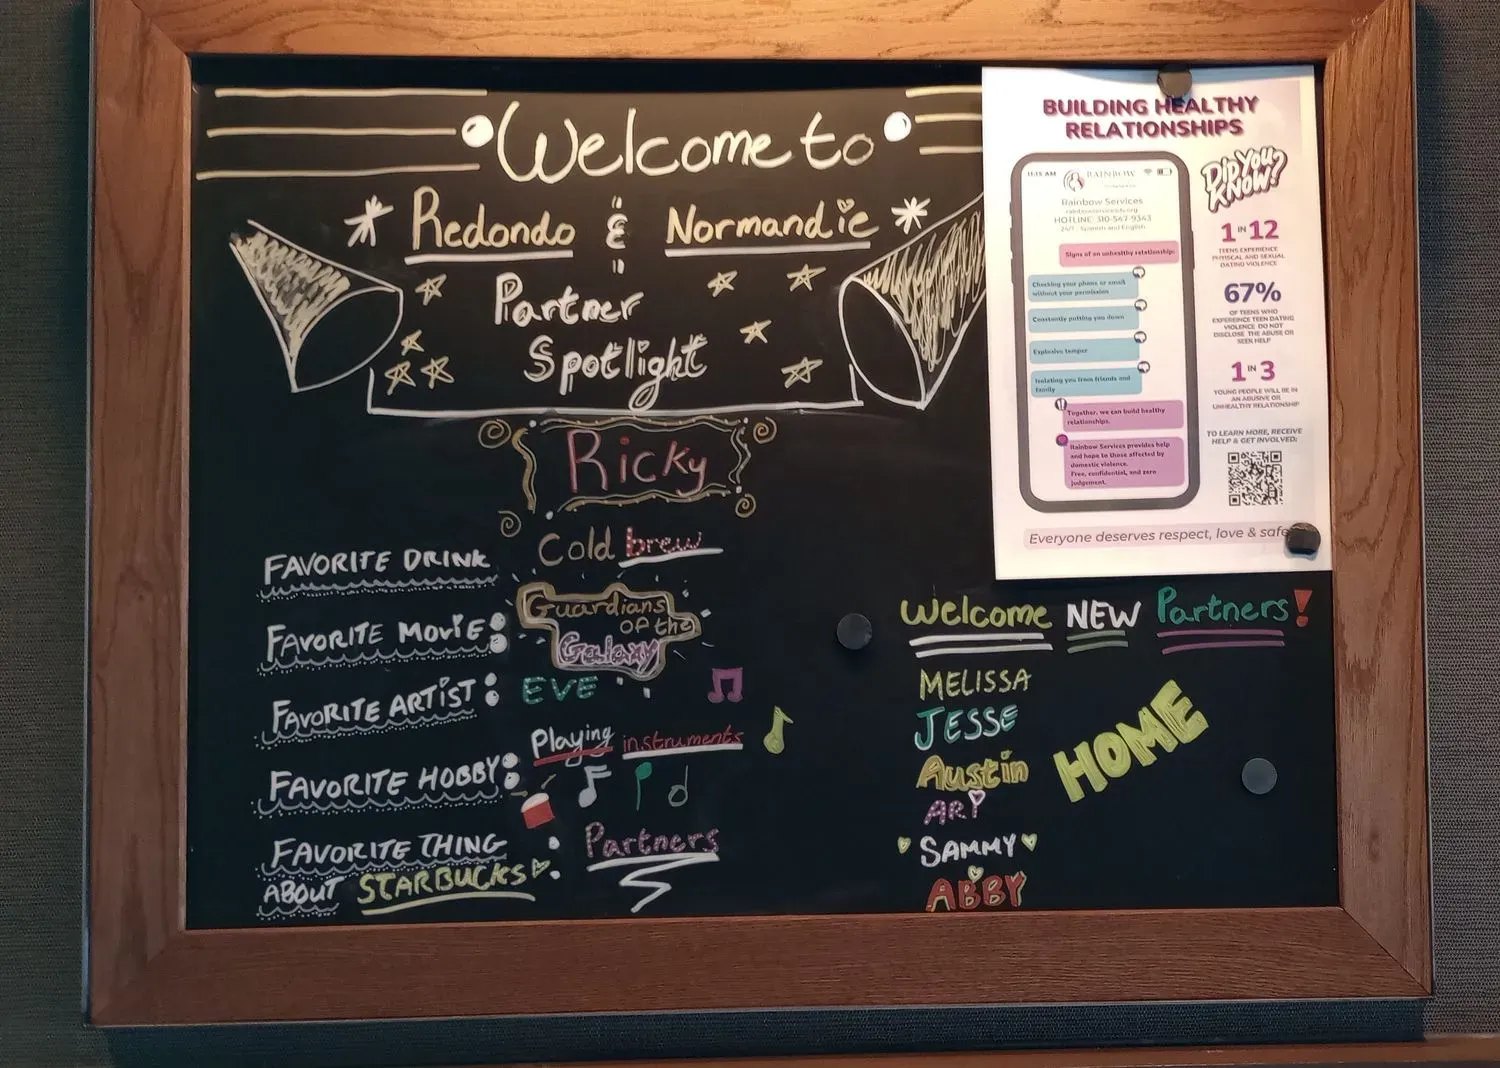 Welcome to
Redondo & Normandie
Partner
Spotlight
Ricky
FAVORITE DRINK
Cold brew
FAVORITE MOVIE:
Guardians
OF the
Galaxy
FAVORITE ARTIST:
EVE
FAVORITE HOBBY:
Playing instruments
FAVORITE THING
ABOUT STARBUCKS
:
Partners
BUILDING HEALTHY
RELATIONSHIPS
11:15 AM
RAINBOW
Rainbow Services
rainbowservicesdv.org
HOTLINE: 310-547-9343
24/7 · Spanish and English
Signs of an unhealthy relationship:
Checking your phone or email
without your permission
Constantly putting you down
Explosive temper
Isolating you from friends and
family
Together, we can build healthy
relationships.
Rainbow Services provides help
and hope to those affected by
domestic violence.
Free, confidential, and zero
judgement.
DID YOU
KNOW?
1 IN 12
TEENS EXPERIENCE
PHYSICAL AND SEXUAL
DATING VIOLENCE
67%
OF TEENS WHO
EXPEREINCE TEEN DATING
VIOLENCE DO NOT
DISCLOSE THE ABUSE OR
SEEK HELP
1 IN 3
YOUNG PEOPLE WILL BE IN
AN ABUSIVE OR
UNHEALTHY RELATIONSHIP
TO LEARN MORE, RECEIVE
HELP & GET INVOLVED:
Everyone deserves respect, love & safe
Welcome NEW Partners!
MELISSA
JESSE
Austin
ARI
SAMMY
ABBY
HOME